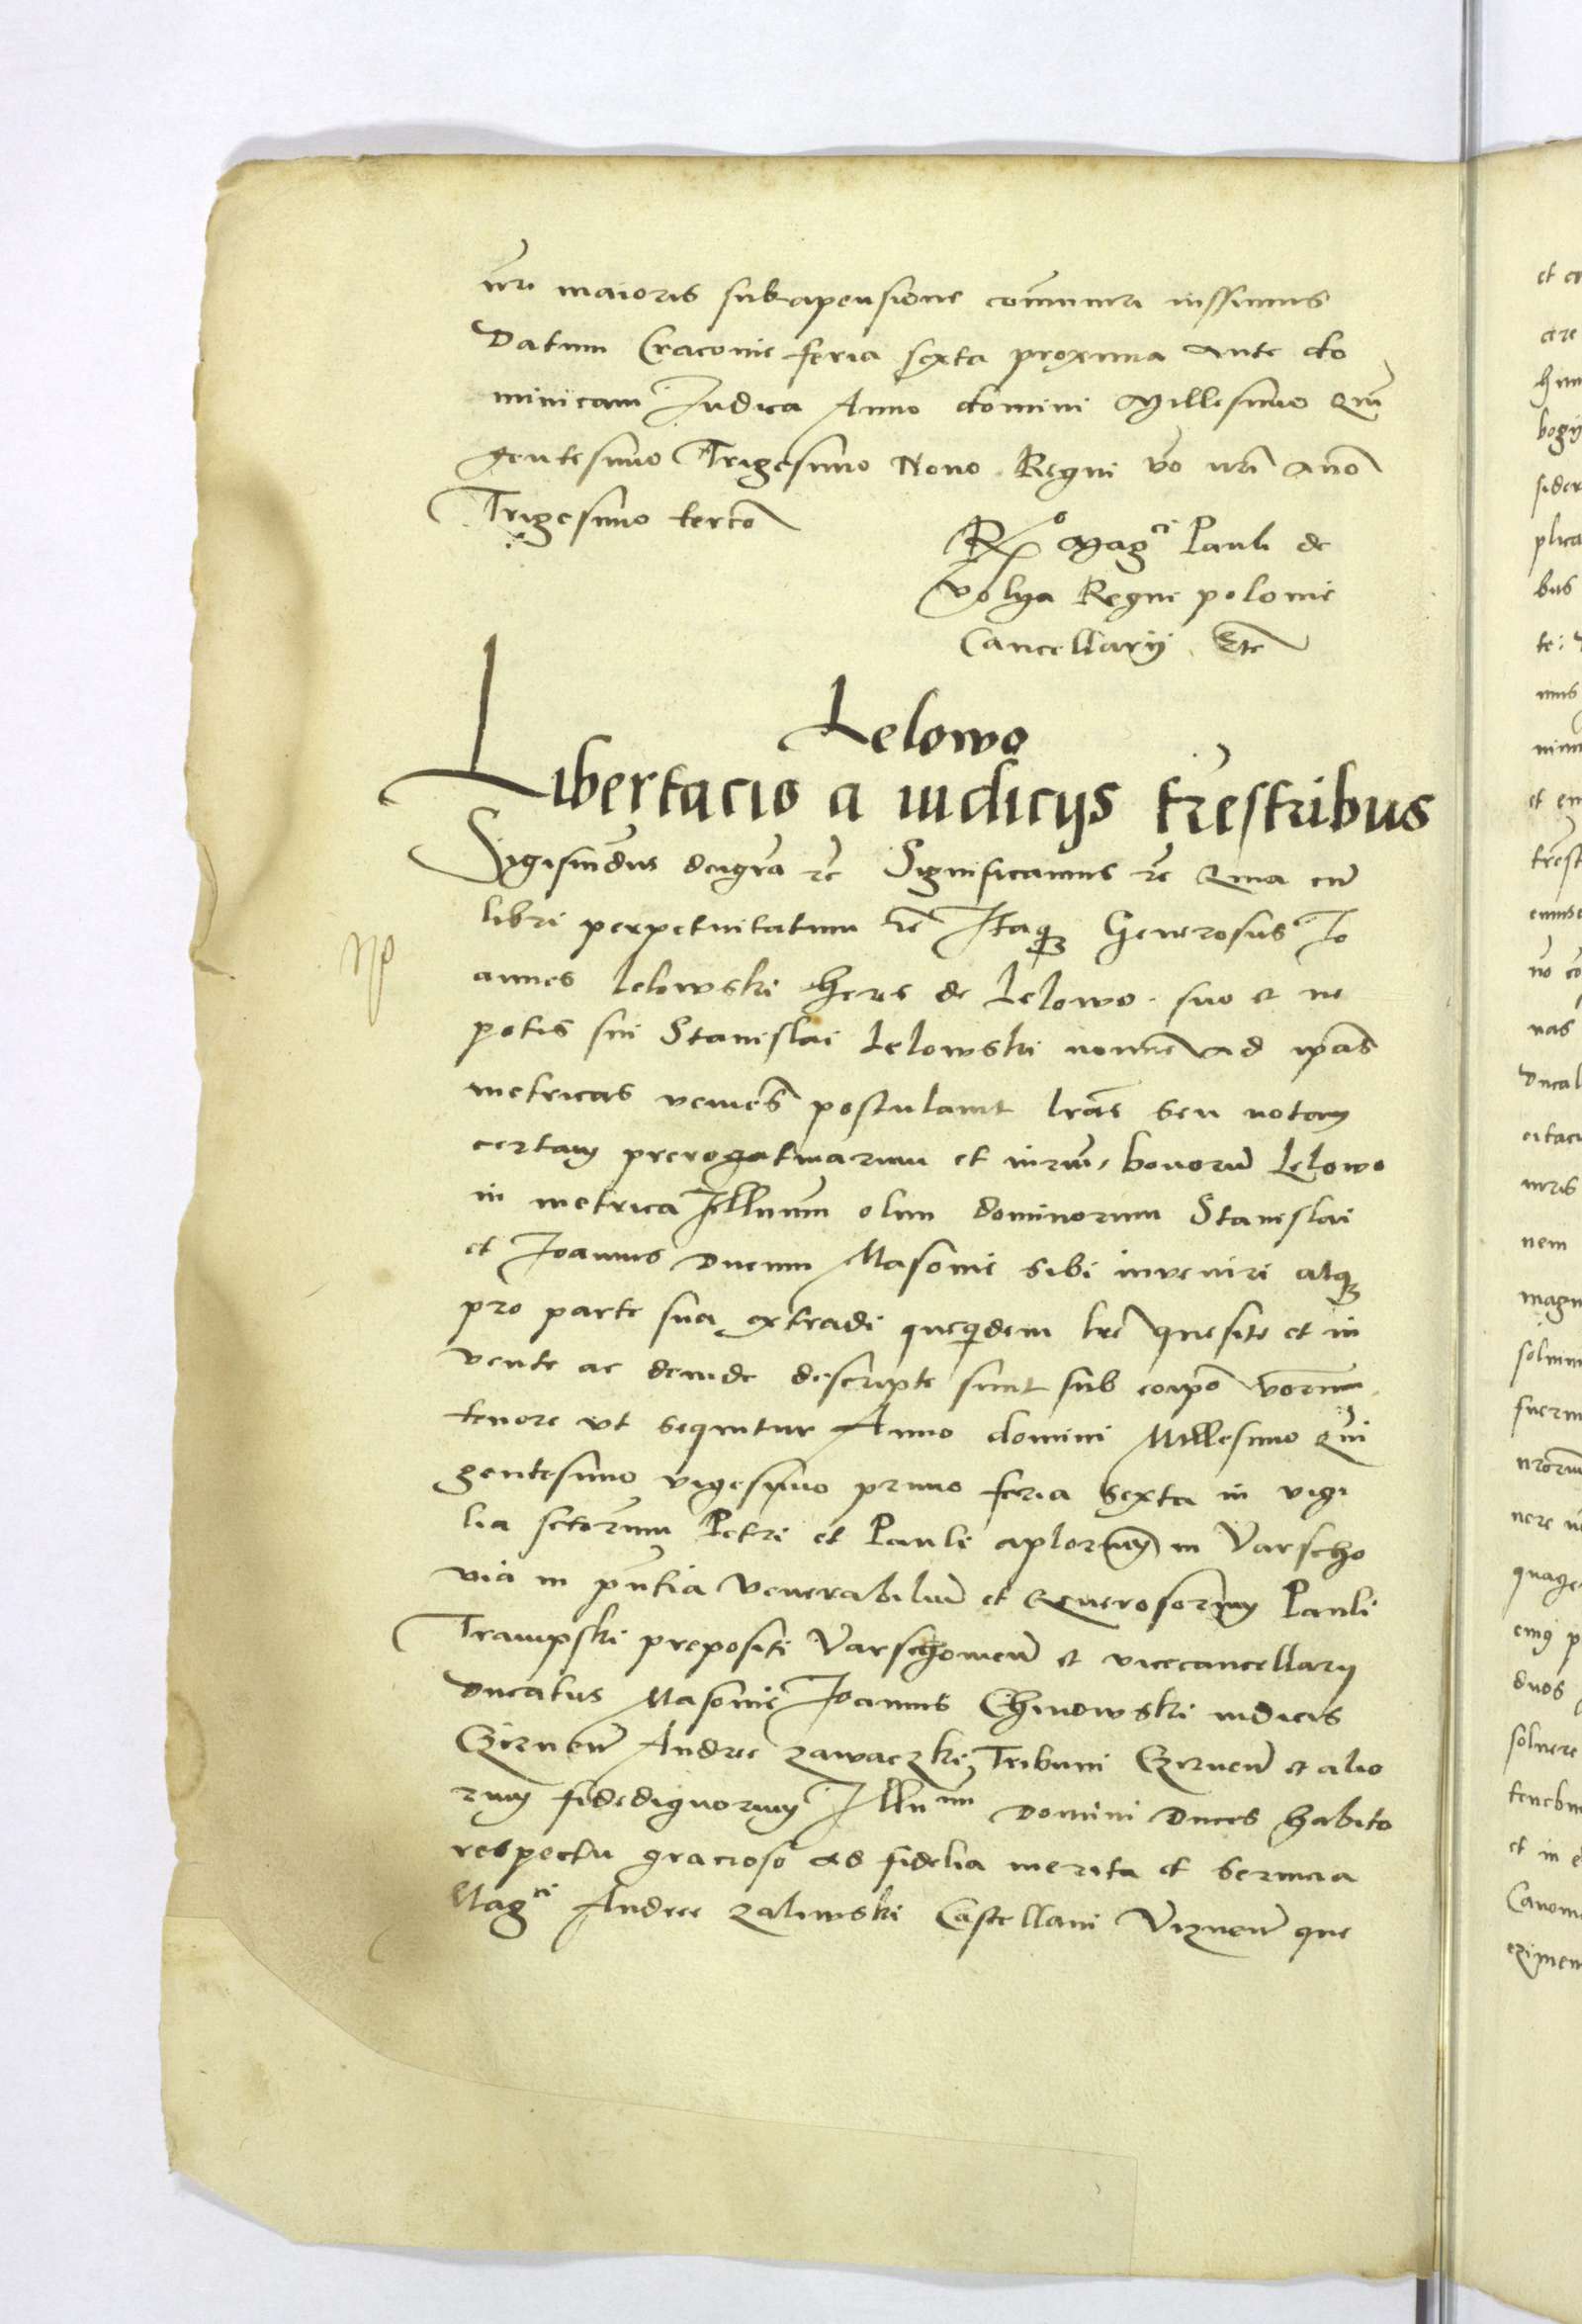 nri maioris subapensione communiri iussimus
Datum Cracovie feria sexta proxima ante do
minicam Iudica Anno domini Millesimo Quin
gentesimo Trigesimo Nono Regni vo nri Anno
Trigesimo tertio
Ro Magci Pauli de
Volya Regni polonie
Cancellarij Etc
Lelowo
Libertacio a iudicijs trestribus
Sigismdus dei gra etc Significamus etc Quia cum
libri perpetuitatum etc Itaq Generosus Io
annes Lelowski heres de Lelowo suo et ne
potis sui Stanislai Lelowski nomine ad ipas
metricas veniens postulavit lras seu notam
certam prerogativarum et iurium bonorum Lelowo
in metrica Illmum olim dominorum Stanislai
et Ioannis Ducum Masovie sibi inveniri atq
pro parte sua extradi quequidem lre quesite et in
vente ac deinde descripte sunt sub eoipo verborum
tenore ut sequitur Anno domini Millesimo Quin
gentesimo vigesimo primo feria sexta in vigi
lia sctorum Petri et Pauli aplorum in Varscho
via in pntia Venerabilium et Generosorum Pauli
Trampski prepositi Varschovien et vicecancellarij
Ducatus Masovie Ioannis Chinowski iudicis
Czirnen Andree Zawaczki Tribuni Czirnen et alio
rum fidedignorum Illmi Domini Duces habito
respectu gracioso ad fidelia merita et servicia
Magci Andree Zaliwski Castellani Viznen que